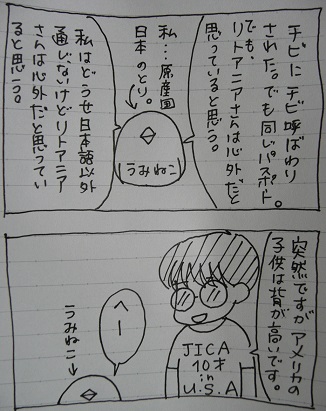 チビにデビ呼ばわり
された。でも同じパスポート。
でも、
リトアニアさんは心外だと
思っていると思う。
私…原産国
日本のとり。
(うみねこ)
私はどうせ日本語以外
通じないけどリトアニア
さんは心外だと思ってい
ると思う。
突然ですがアメリカの
子供は背が高いです。
JICA
10才
in
U.S.A
へー
うみねこ